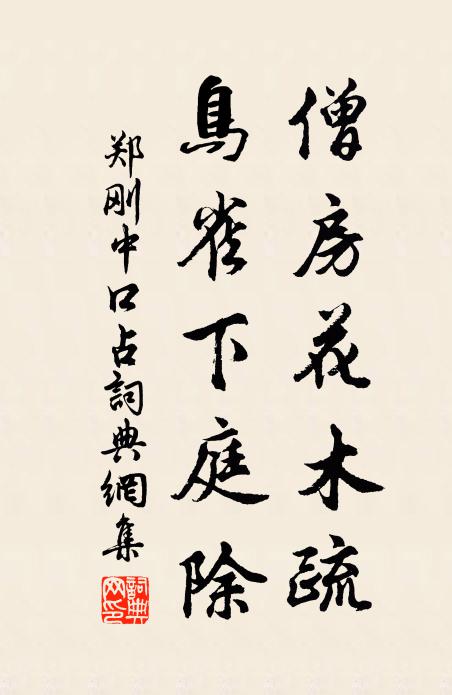 僧房花木疏
鳥雀下庭除
郑刚中口占詞典網集
詞典網印